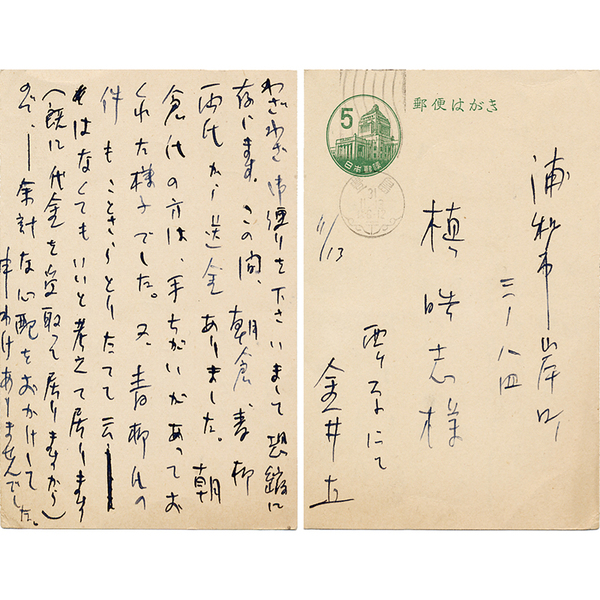 わざわざ御便りを下さいまして恐縮に
存じます。この間、朝倉、青柳
両氏から送金ありました。朝
倉氏の方は、手ちがいがあってお
くれた様子でした。又、青柳氏の
件もことさらとりたてて云
はなくてもいいと考えて居ります
(既に代金を受取って居りますから)
ので、一余計な心配をおかけして
申わけありませんでした。
郵便はがき
5
日本郵便
31
11/13
浦和市岸町
三ノ八四
槙晧志様
西ヶ原にて
金井直